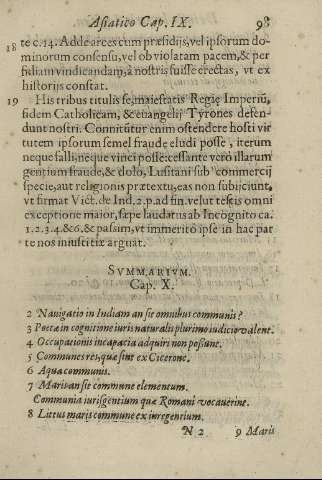 Asiatico Cap. IX. 98
18 te c. 14. Adde arces cum præsidijs, vel ipsorum do-
minorum consensu, vel ob violatam pacem, & per
fidiam vindicandam, à nostris fuisse erectas, vt ex
historijs constat.
19 His tribus titulis se, maiestatis Regię Imperiũ,
fidem Catholicam, & euangelij Tyrones defen-
dunt nostri. Connitũtur enim ostendere hosti vir
tutem ipsorum semel fraude eludi posse, iterum
neque falli, neque vinci posse: cessante verò illarum
gentium fraude, & dolo, Lusitani sub commercij
specie, aut religionis prætextu, eas non subijciunt,
vt firmat Vict. de Ind. 2. p. ad fin. velut testis omni
exceptione maior, sæpe laudatus ab Incognito ca.
1. 2. 3. 4. & 6. & passim, vt immeritò ipse in hac par
te nos iniustitiæ arguat.
SVMMARIVM.
Cap. X.
2 Nauigatio in Indiam an sit omnibus communis?
3 Poetæ in cognitione iuris naturalis plurimo iudicio valent.
4 Occupationis incapacia adquiri non possunt.
5 Communes res, quæ sint ex Cicerone.
6 Aqua communis.
7 Maris an sit commune elementum.
Communia iuris gentium quæ Romani vocauerint.
8 Littus maris commune ex iure gentium.
N 2 9 Maris